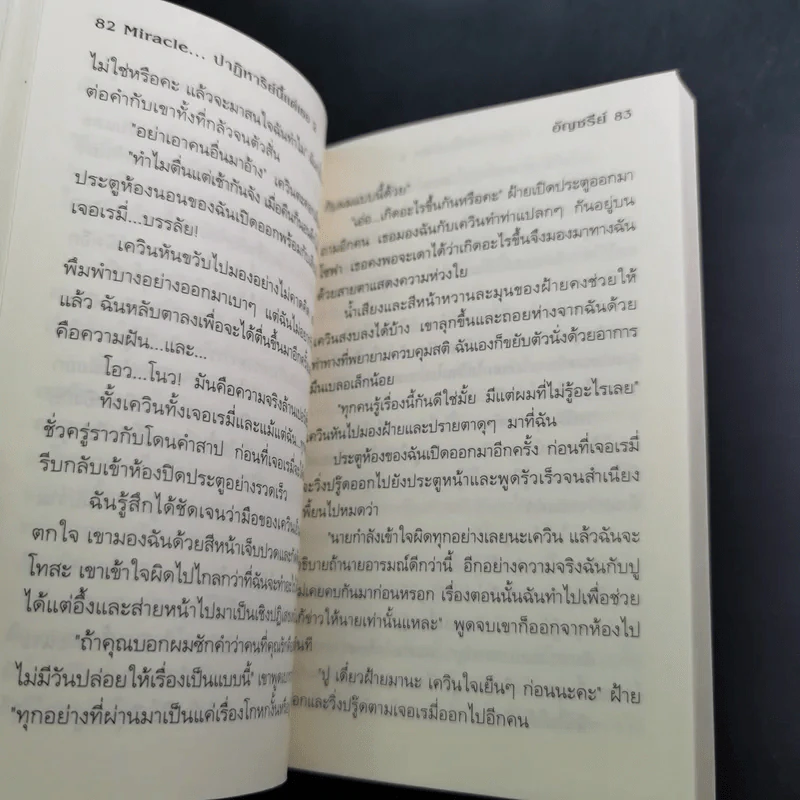 82 Miracle... ปาฏิหาริย์
ไม่ใช่หรือคะ แล้วจะมาสนใจฉันทำไม
ต่อคำกับเขาทั้งที่กลัวจนตัวสั่น
"อย่าเอาคนอื่นมาอ้าง" เควิน
"ทำไมตื่นแต่เช้ากันจัง
ประตูห้องนอนของฉันเปิดออกพร้อม
เจอเรมี่...บรรลัย!
เควินหันขวับไปมองอย่างไม่คาดคิด
พึมพำบางอย่างออกมาเบาๆ แต่ฉันไม่
แล้ว ฉันหลับตาลงเพื่อจะได้ตื่นขึ้นมาอีกครั้ง
คือความฝัน...และ...
โอว...โนว! มันคือความจริงล้าน
ทั้งเควินทั้งเจอเรมี่และแม้แต่ฉัน
ชั่วครู่ราวกับโดนคำสาป ก่อนที่เจอเรมี่จะ
รีบกลับเข้าห้องปิดประตูอย่างรวดเร็ว
ฉันรู้สึกได้ชัดเจนว่ามือของเควิน
ตกใจ เขามองฉันด้วยสีหน้าเจ็บปวดและ
โทสะ เขาเข้าใจผิดไปไกลกว่าที่ฉันจะ
ได้แต่อึ้งและส่ายหน้าไปมาเป็นเชิงปฏิเสธ
"ถ้าคุณบอกผมซักคำว่าคนที่คุณ
ไม่มีวันปล่อยให้เรื่องเป็นแบบนี้" เขา
"ทุกอย่างที่ผ่านมาเป็นแค่เรื่องโกหก
อัญชรีย์ 83
แบบนี้ด้วย"
"เอ่อ...เกิดอะไรขึ้นกันหรือคะ" ฝ้ายเปิดประตูออกมา
ถามอีกคน เธอมองฉันกับเควินทำท่าแปลกๆ กันอยู่บน
โซฟา เธอคงพอจะเดาได้ว่าเกิดอะไรขึ้นจึงมองมาทางฉัน
ด้วยสายตาแสดงความห่วงใย
น้ำเสียงและสีหน้าหวานละมุนของฝ้ายคงช่วยให้
เควินสงบลงได้บ้าง เขาลุกขึ้นและถอยห่างจากฉันด้วย
ท่าทางที่พยายามควบคุมสติ ฉันเองก็ขยับตัวนั่งด้วยอาการ
มึนเบลอเล็กน้อย
"ทุกคนรู้เรื่องนี้กันดีใช่มั้ย มีแต่ผมที่ไม่รู้อะไรเลย"
เควินหันไปมองฝ้ายและปรายตาดุๆ มาที่ฉัน
ประตูห้องของฉันเปิดออกมาอีกครั้ง ก่อนที่เจอเรมี่
จะวิ่งปรู๊ดออกไปยังประตูหน้าและพูดรัวเร็วจนสำเนียง
เพี้ยนไปหมดว่า
"นายกำลังเข้าใจผิดทุกอย่างเลยนะเควิน แล้วฉันจะ
อธิบายถ้านายอารมณ์ดีกว่านี้ อีกอย่างความจริงฉันกับปู
ไม่เคยคบกันมาก่อนหรอก เรื่องตอนนั้นฉันทำไปเพื่อช่วย
ข่าวให้นายเท่านั้นแหละ" พูดจบเขาก็ออกจากห้องไป
ทันที
"ปู เดี๋ยวฝ้ายมานะ เควินใจเย็นๆ ก่อนนะคะ" ฝ้าย
และวิ่งปรู๊ดตามเจอเรมี่ออกไปอีกคน